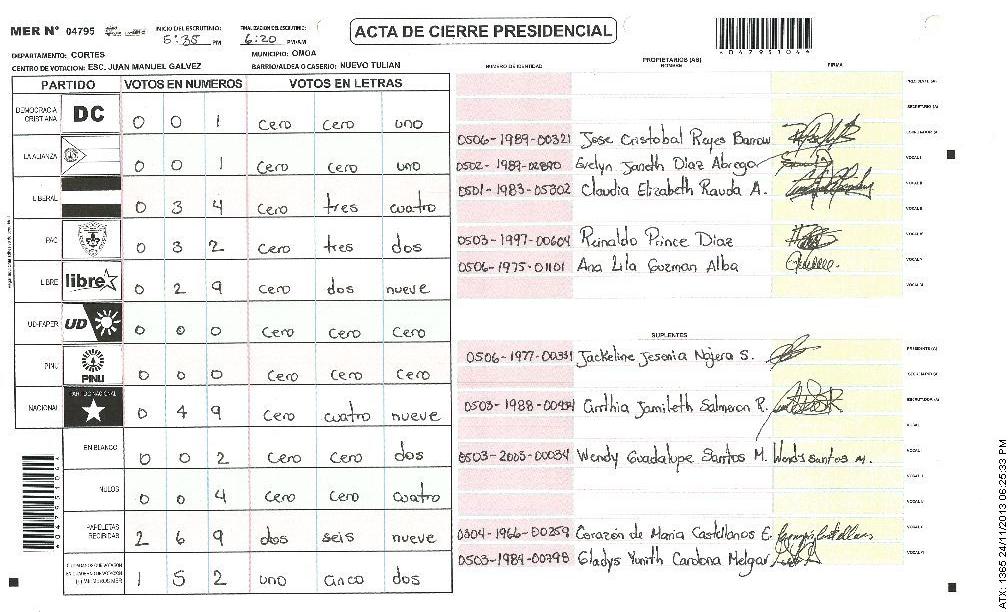 MER N° 04795
INICIO DEL ESCRUTINIO:
5:35 PM
FINALIZACION DEL ESCRUTINIO:
6:20 PM/AM
ACTA DE CIERRE PRESIDENCIAL
DEPARTAMENTO: CORTES
MUNICIPIO: OMOA
CENTRO DE VOTACION: ESC. JUAN MANUEL GALVEZ
BARRIO/ALDEA O CASERIO: NUEVO TULIAN
PARTIDO VOTOS EN NUMEROS VOTOS EN LETRAS
DEMOCRACIA CRISTIANA DC 0 0 1 cero cero uno
LA ALIANZA 0 0 1 cero cero uno
LIBERAL 0 3 4 cero tres cuatro
PAC 0 3 2 cero tres dos
LIBRE libre 0 2 9 cero dos nueve
UD-FAPER UD 0 0 0 cero cero cero
PINU PINU 0 0 0 cero cero cero
NACIONAL PARTIDO NACIONAL 0 4 9 cero cuatro nueve
EN BLANCO 0 0 2 cero cero dos
NULOS 0 0 4 cero cero cuatro
PAPELETAS RECIBIDAS 2 6 9 dos seis nueve
1 5 2 uno cinco dos
NUMERO DE IDENTIDAD
PROPIETARIOS (AS)
NOMBRE
FIRMA
PRESIDENTE (A)
SECRETARIO (A)
0506-1989-00321 Jose Cristobal Reyes Barrow ESCRUTADOR (A)
0502-1989-02890 Evelyn Janeth Diaz Abrego VOCAL I
0501-1983-05302 Claudia Elizabeth Rauda A. VOCAL II
VOCAL III
0503-1997-00604 Reinaldo Prince Diaz VOCAL IV
0506-1975-01101 Ana Lila Guzman Alba VOCAL V
VOCAL VI
SUPLENTES
0506-1977-00331 Jackeline Jesenia Najera S. PRESIDENTE (A)
SECRETARIO (A)
Cinthia Jamileth Salmeron R. ESCRUTADOR (A)
VOCAL I
0503-2005-00034 Wendy Guadalupe Santos M. Wendy santos M.
0304-1966-00259 Corazón de Maria Castellanos E.
0503-1984-00798 Gladys Yunith Cardona Melgar
ATX: 1365 24/11/2013 06:25:33 PM